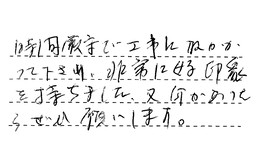 時間厳守で工事に取りかか
って下さり、非常に好印象
を持ちました。又何かあった
らぜひ願いします。